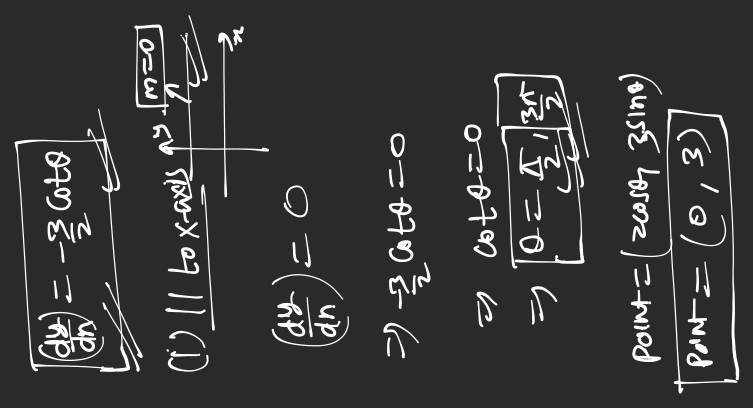 (dy/dn) = -3/2 cotθ
(i) || to x-axis m=0
y
x
(dy/dn) = 0
⇒ -3/2 cotθ = 0
⇒ cotθ = 0
⇒ θ = π/2, 3π/2
point = (2cosθ, 3sinθ)
point = (0, 3)